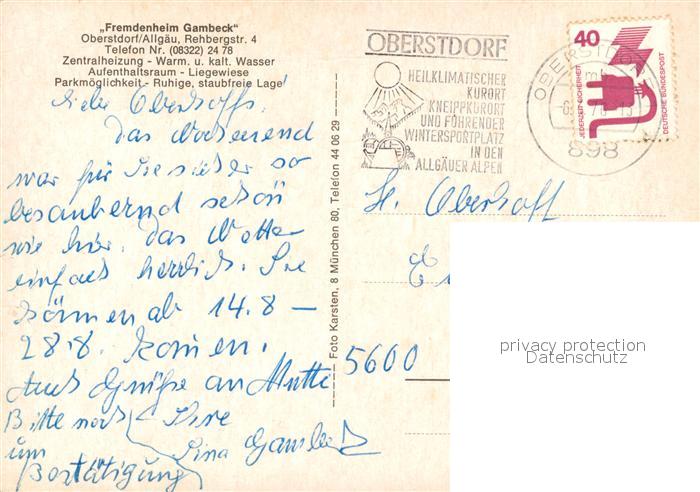 „Fremdenheim Gambeck"
Oberstdorf/Allgäu, Rehbergstr. 4
Telefon Nr. (08322) 24 78
Zentralheizung - Warm. u. kalt. Wasser
Aufenthaltsraum - Liegewiese
Parkmöglichkeit - Ruhige, staubfreie Lage
Liebe Oberhoffs,
das Wochenend
war für Sie sicher so
bezaubernd schön
wie hier. Das Wetter
einfach herrlich. Sie
können ab 14.8 –
28.8. kommen.
Auch Grüße an Mutti
Bitte noch Ihre
um Lina Gambeck
Bestätigung
Foto Karsten, 8 München 80, Telefon 44 06 29
OBERSTDORF
HEILKLIMATISCHER
KURORT
KNEIPPKURORT
UND FÜHRENDER
WINTERSPORTPLATZ
IN DEN
ALLGÄUER ALPEN
OBERSTDORF
898
40
JEDERZEIT SICHERHEIT
DEUTSCHE BUNDESPOST
Oberhoff
5600
privacy protection
Datenschutz